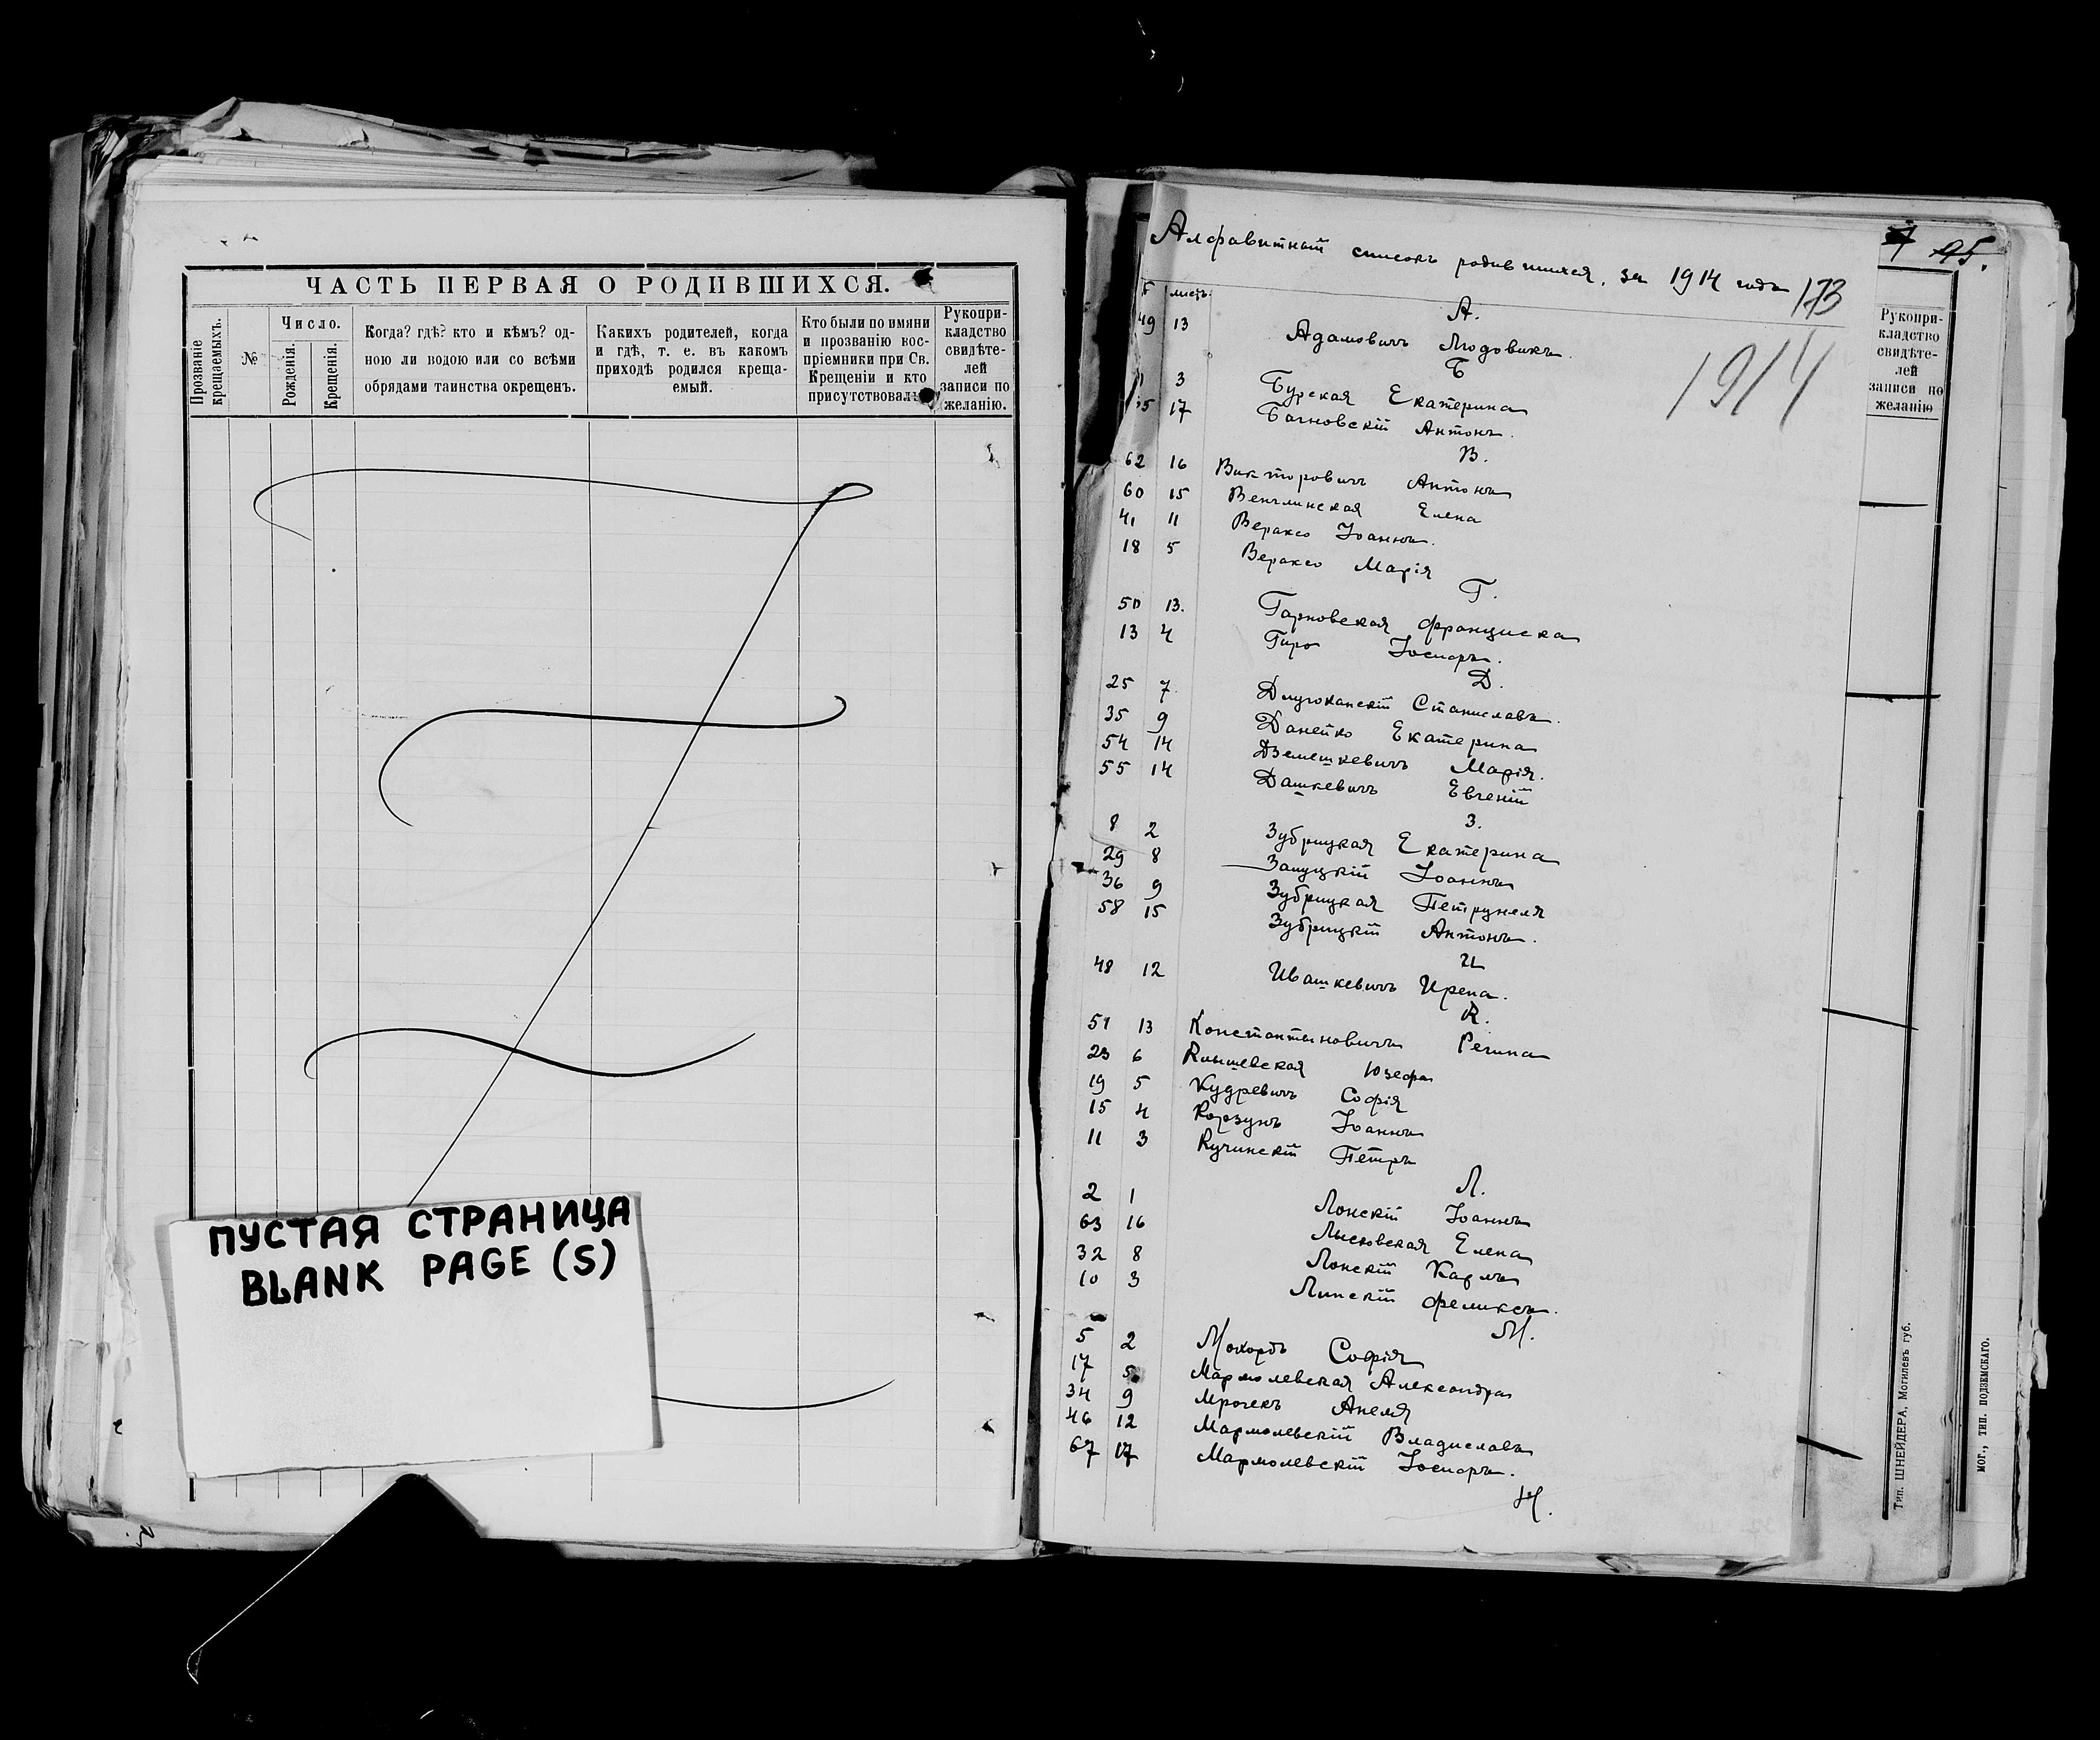 ЧАСТЬ ПЕРВАЯ О РОДИВШИХСЯ.
Прозваніе крещаемыхъ.
№
Число.
Рожденія.
Крещенія.
Когда? гдѣ? кто и кѣмъ? од-
ною ли водою или со всѣми
обрядами таинства окрещенъ.
Какихъ родителей, когда
и гдѣ, т. е. въ какомъ
приходѣ родился креща-
емый.
Кто были по имяни
и прозванію вос-
пріемники при Св.
Крещеніи и кто
присутствовалъ
Рукопри-
кладство
свидѣте-
лей
записи по
желанію.
ПУСТАЯ СТРАНИЦА
BLANK PAGE (S)
Алфавитный списокъ родившихся, за 1914 годъ 173
95.
1914
листъ
А.
49 13 Адамовичъ Людовикъ.
Б
3 Бурская Екатерина
17 Багновскій Антонъ.
В.
62 16 Викторовичъ Антонъ
60 15 Венглинская Елена
41 11 Вераксо Іоаннъ.
18 5 Вераксо Марія
Г.
50 13. Гарновская Франциска
13 4 Гиро Іосифъ.
Д.
25 7 Длугоканскій Станиславъ.
35 9 Данейко Екатерина
54 14 Дземешкевичъ Марія.
55 14 Дашкевичъ Евгеній
З.
8 2 Зубрицкая Екатерина
29 8 Залуцкій Іоаннъ
36 9 Зубрицкая Петрунеля
58 15 Зубрицкій Антонъ.
И
48 12 Ивашкевичъ Ирена.
К.
51 13 Константиновичъ Регина
23 6 Клышевская Юзефа
19 5 Кудревичъ Софія
15 4 Корзунъ Іоаннъ
11 3 Кучинскій Петръ
Л.
2 1 Лонскій Іоаннъ
63 16 Лысковская Елена
32 8 Лонскій Карлъ
10 3 Липскій Феликсъ.
М.
5 2 Мохортъ Софія
17 5 Мармолевская Александра
34 9 Мрочекъ Анеля
46 12 Мармолевскій Владиславъ
67 17 Мармолевскій Іосифъ.
Н.
Рукопри-
кладство
свидѣте-
лей
записи по
желанію
Тип. ШНЕЙДЕРА, Могилевъ губ.
МОГ., ТИП. ПОДЗЕМСКАГО.